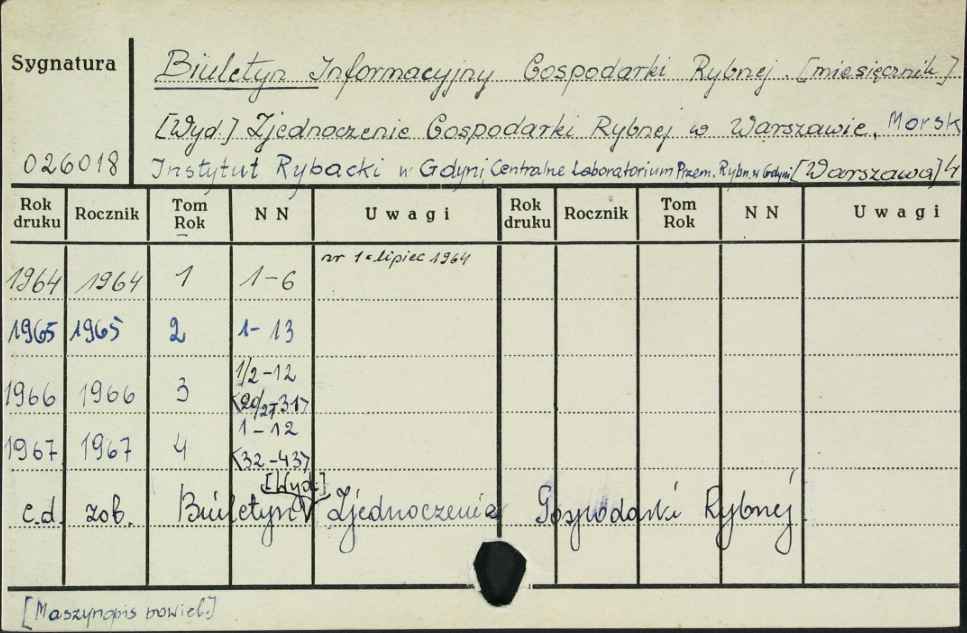 Sygnatura
Biuletyn Informacyjny Gospodarki Rybnej [miesięcznik]
[Wyd.] Zjednoczenie Gospodarki Rybnej w Warszawie, Morsk
026018 Instytut Rybacki w Gdyni, Centralne Laboratorium Przem. Rybn. w Gdyni [Warszawa] 4
Rok druku Rocznik Tom Rok NN Uwagi Rok druku Rocznik Tom Rok NN Uwagi
1964 1964 1 1-6 nr 1 = lipiec 1964
1965 1965 2 1-13
1966 1966 3 1/2-12
<20/27-31>
1967 1967 4 1-12
<32-43>
[Wyd.]
c.d. zob. Biuletyn Zjednoczenia Gospodarki Rybnej
[Maszynopis powiel.]